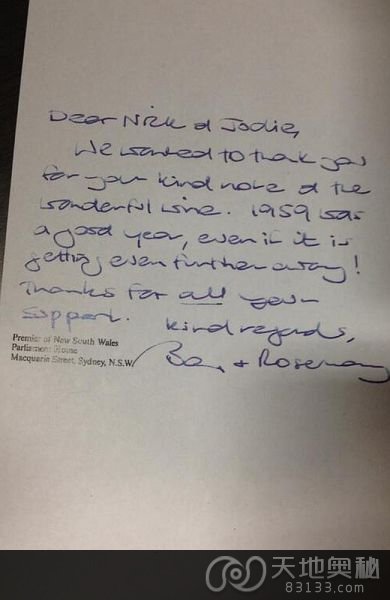 Dear Nick & Jodie,
We wanted to thank you
for your kind note & the
wonderful wine. 1959 was
a good year, even if it is
getting even further away!
Thanks for all your
support.
Kind regards,
Premier of New South Wales
Parliament House
Macquarie Street, Sydney, N.S.W.
+ Rosemary
天地奥秘
83133.com